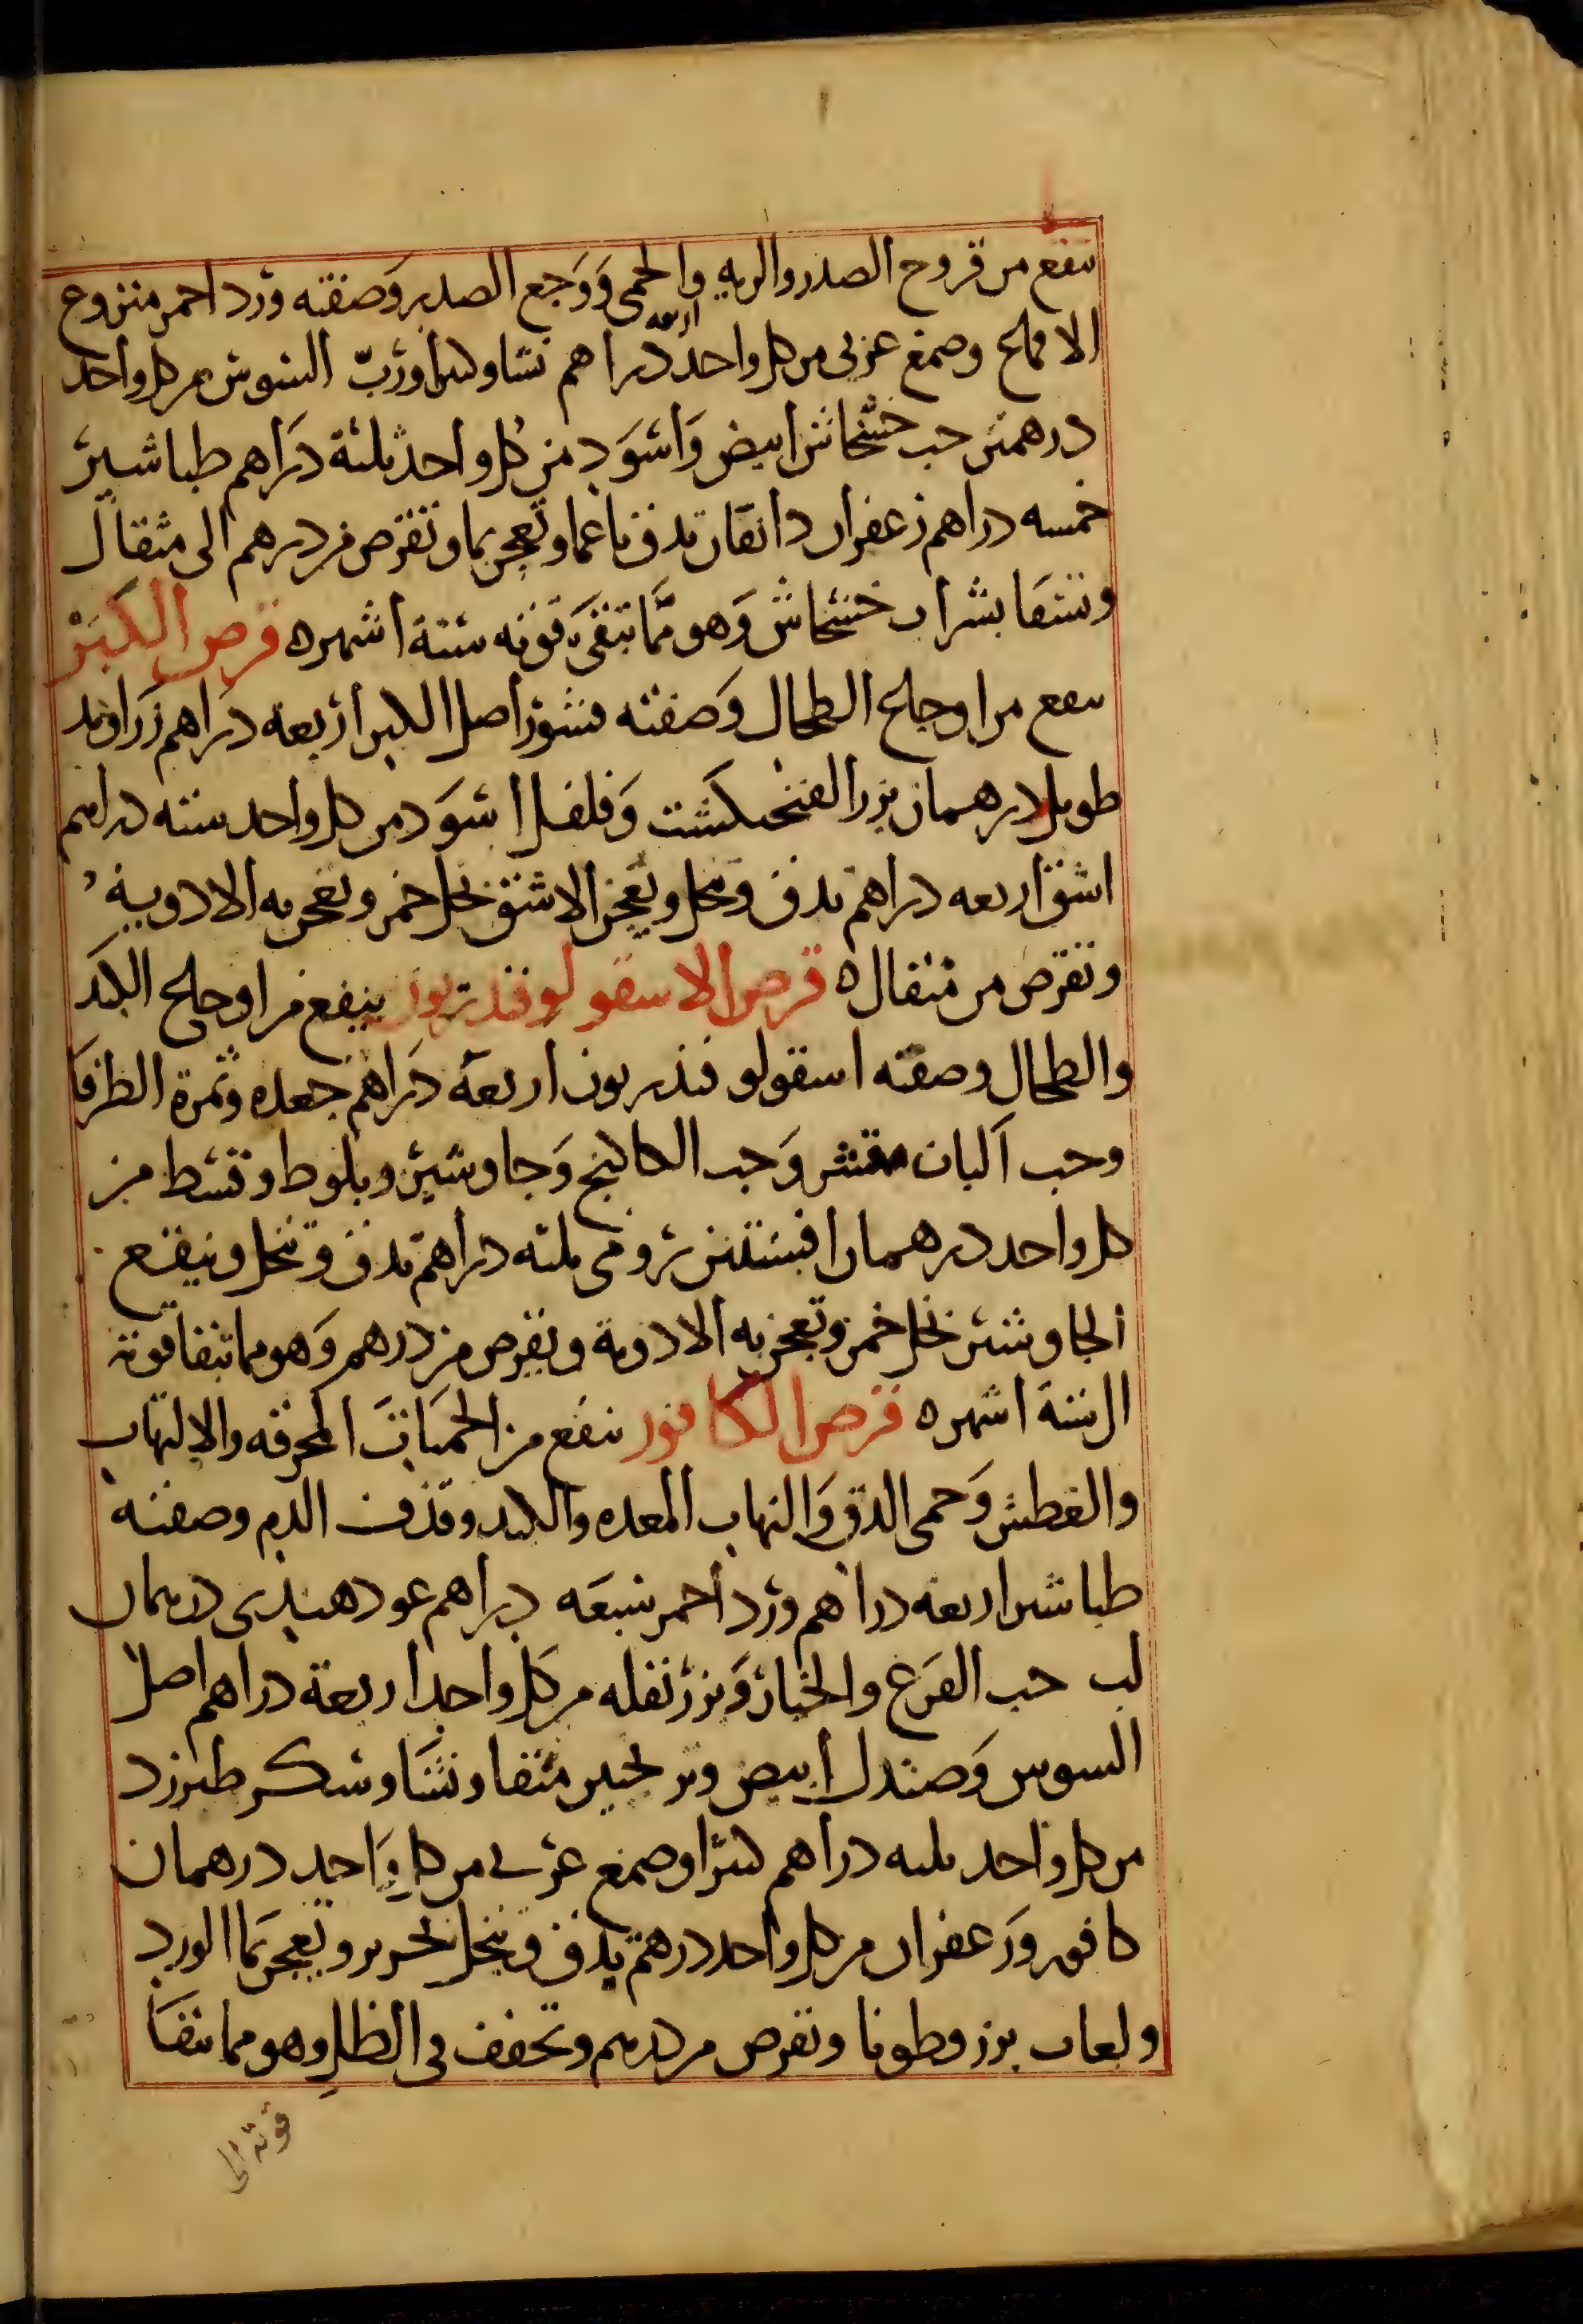 ينفع من قروح الصدر والريه والحمى وَوَجع الصدر وَصفته وَرد احمر منزوع
الاقماع وصمغ عربى من كل واحد اربعه دراهم نشا وكثيرا ورُبّ السوس من كل واحد
درهمين حب خشخاش ابيض وَاسوَد من كل واحد ثلثة دَراهم طباشير
خمسه دراهم زعفران دانقان تدق ناعما وتعجن بما وتقرص من درهم الى مثقال
وتسقا بشراب خشخاش وَهو ممّا تبقىَ قوته ستة اشهر ه قرص الكَبَر
ينفع من اوجاع الطحال وَصفته قشور اصل الكبر اربعة دَراهم زَراوند
طويل درهمان بزر الفنجنكشت وَفلفل اسوَد من كل واحد سته دراهم
اشق اربعه دراهم تدق وتنخل وتعجن الاشق بخل خمر وتعجن به الادوية
وتقرص من مثقال ه قرص الاسقولوقندريون ينفع من اوجاع الكبد
والطحال وصفته اسقولوقندريون اربعة دَراهم جعده وثمرة الطرفا
وحب البان مقشر وَحب الكاكنج وَجاوشير وبلوط وقسط من
كل واحد درهمان افسنتين رومى ثلثه دراهم تدق وتنخل وينقع
الجاوشير بخل خمر وتعجن به الادوية وتقرص من درهم وَهو مما تبقا قوته
الى ستة اشهر ه قرص الكافور ينفع من الحميات المحرقه والالتهاب
والعطش وَحمى الدق وَالتهاب المعده والكبد وقذف الدم وصفته
طباشير اربعه دراهم وَرد احمر سبعَه دراهم عود هندى درهمان
لب حب القرع والخيار وَبزر بقله من كل واحد اربعة دراهم اصل
السوس وَصندل ابيض وترنجبين منقا ونشَا وسكر طبرزد
من كل واحد ثلثه دراهم كثيرا وصمغ عربى من كل وَاحد درهمان
كافور وَزعفران من كل واحد درهم يدق وينخل بحرير وتعجن بما الورد
ولعاب بزر قطونا وتقرص من درهم وتجفف فى الظل وهو مما تبقا
قوته الى